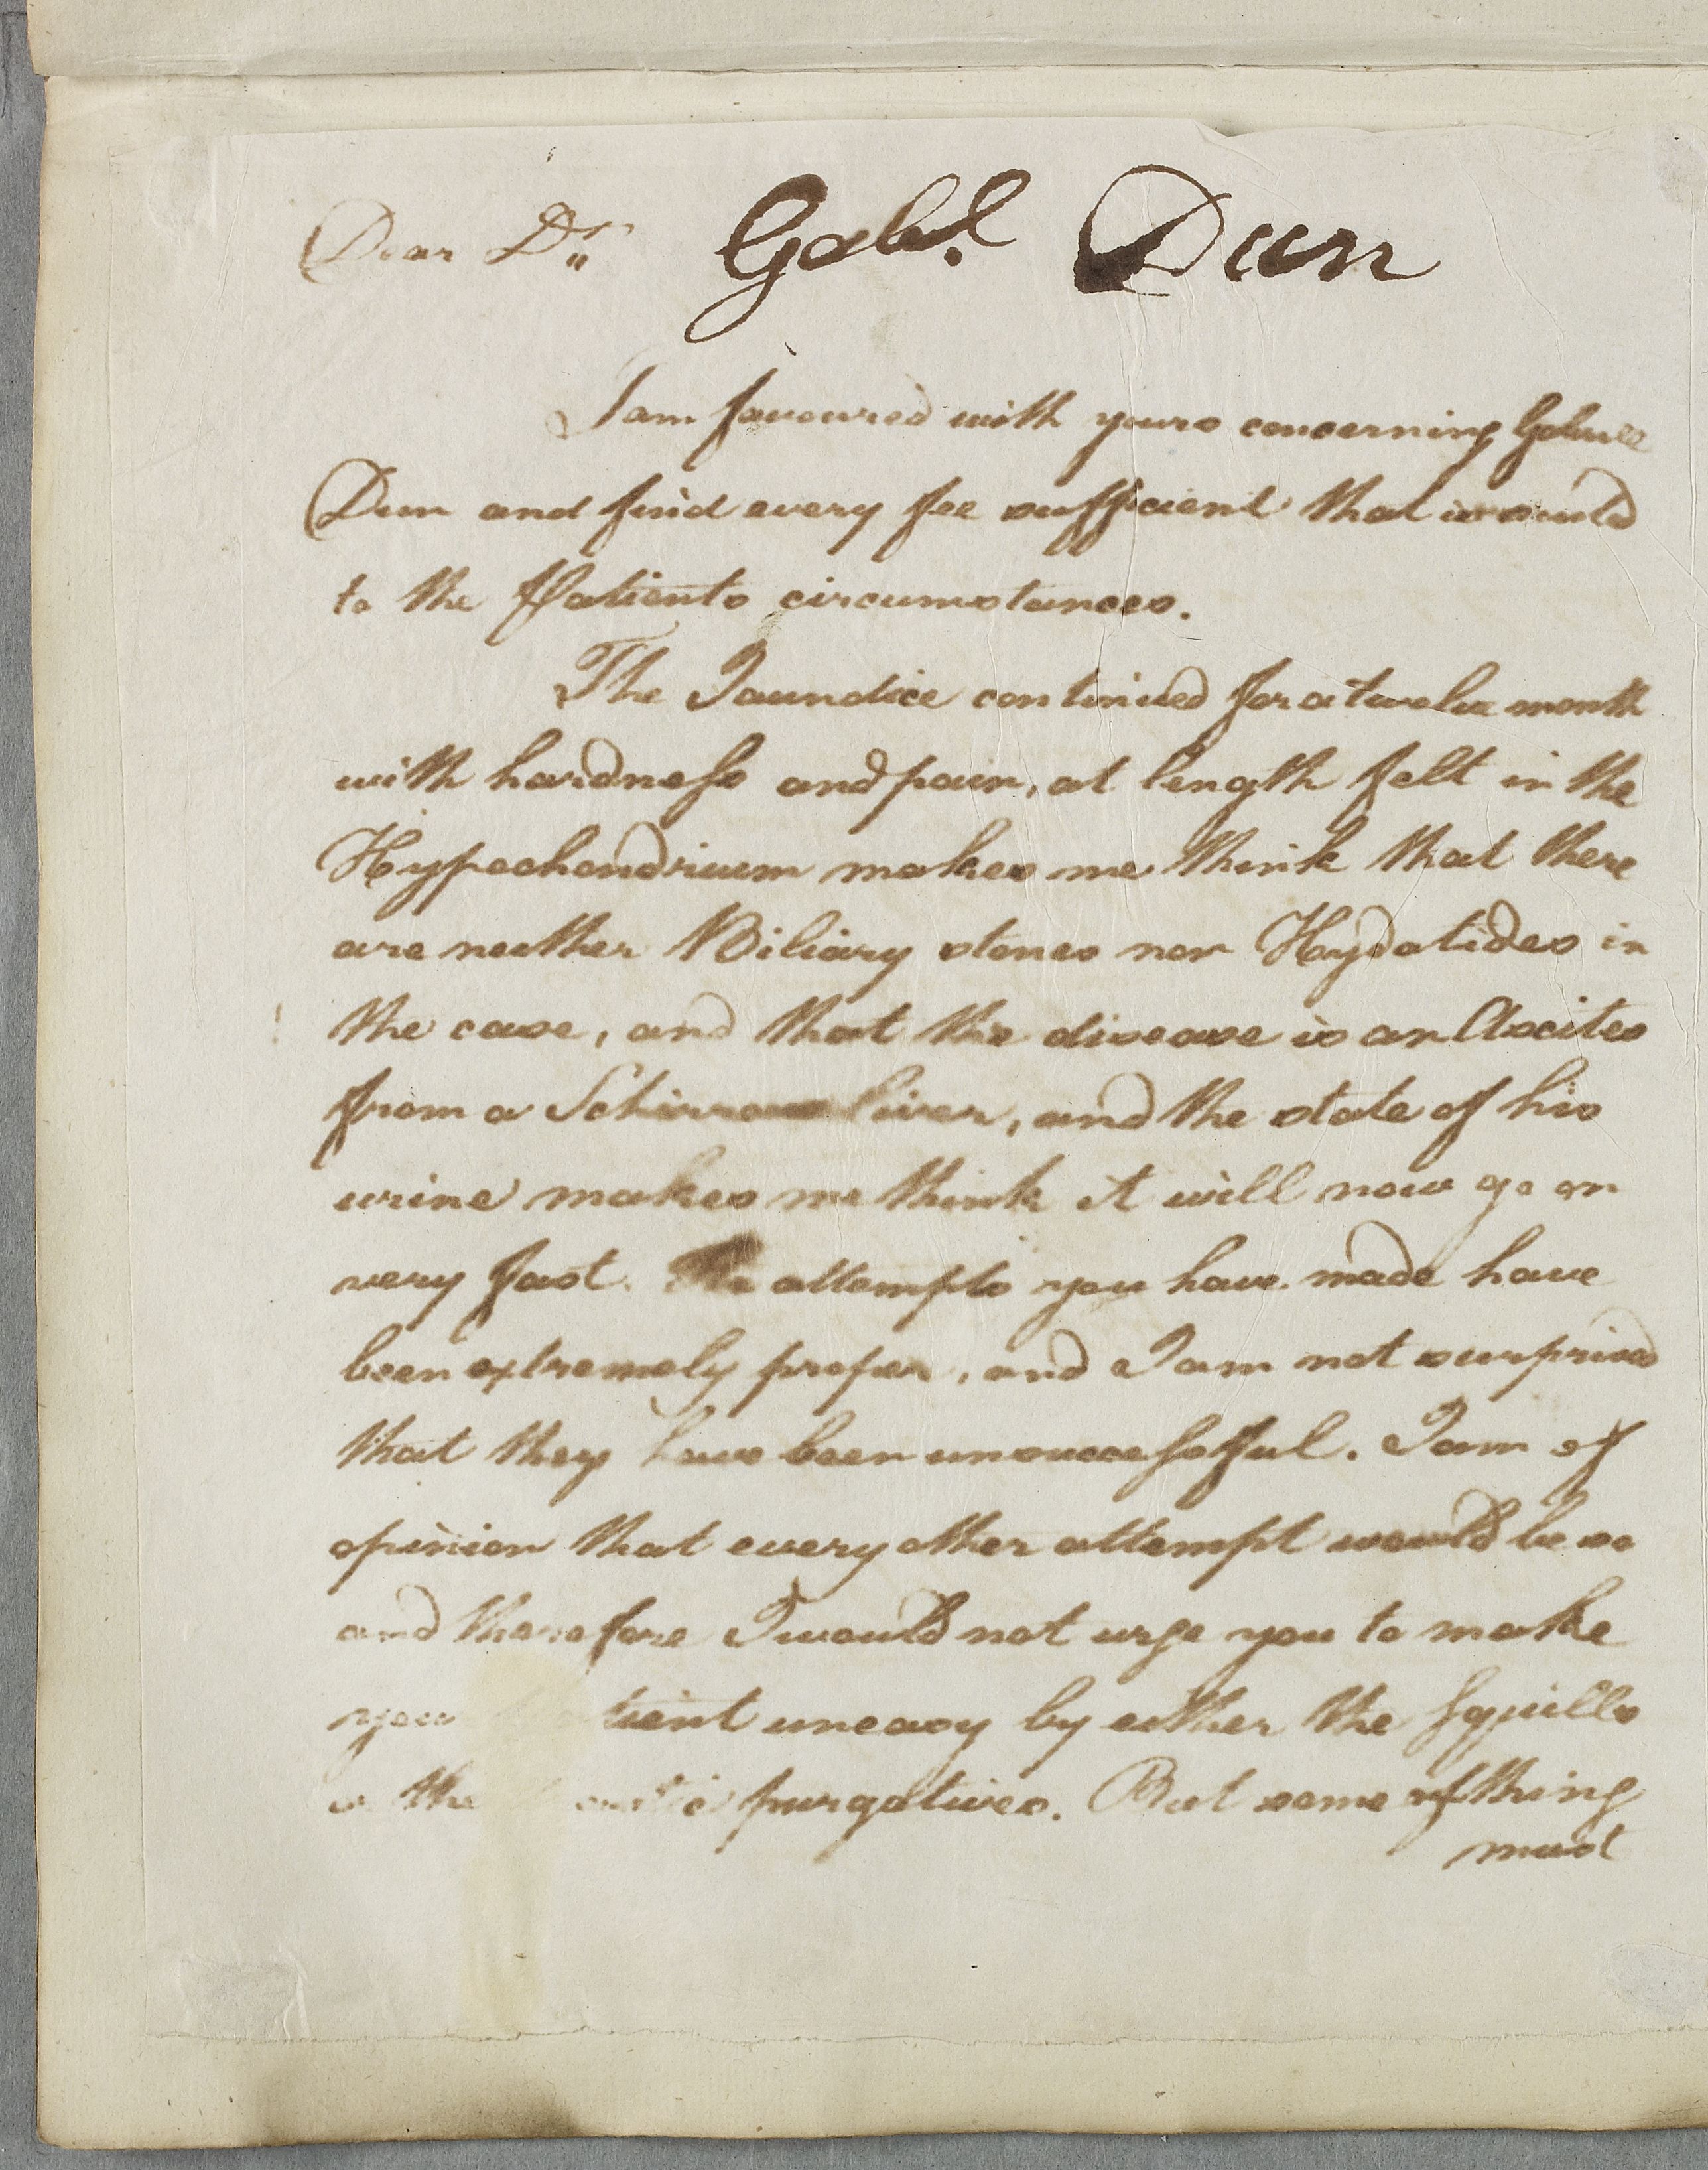 Dear Dr. Gabl. Dun
I am favoured with yours concerning Gabriel
Dun and find every fee sufficient that is
to the Patients circumstances.
The Jaundice continued for a twelve month
with hardness and pain, at length felt in the
Hypochondrium makes me think that there
are neither Biliary stones nor Hydatides in
the case, and that the disease is an Ascites
from a Schirrous liver, and the state of his
urine makes me think it will now go on
very fast. The attempts you have made have
been extremely proper, and I am not surprised
that they have been unsuccessful. I am of
opinion that every other attempt would be so
and therefore I would not urge you to make
your tient uneasy by either the Squills
the purgatives. But some thing
must